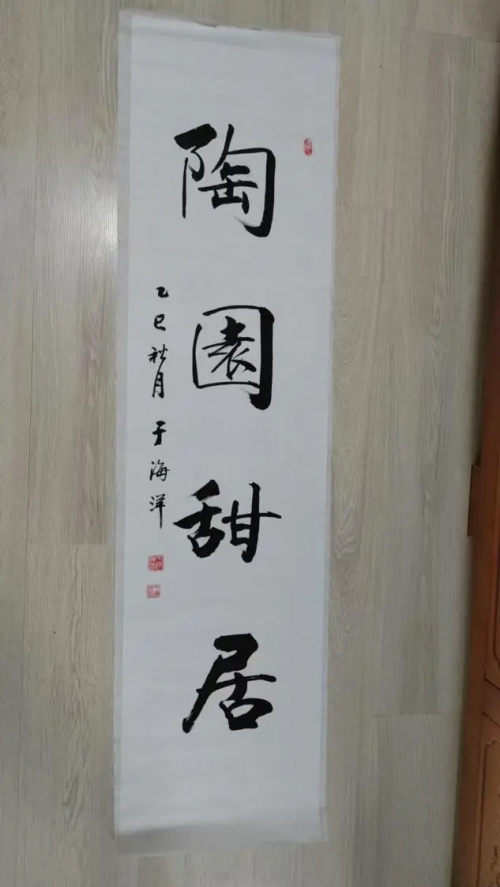 陶園甜居
乙巳秋月于海洋